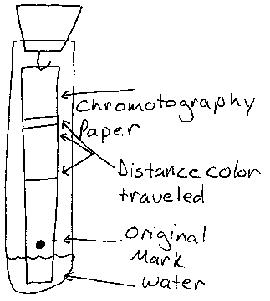 Chromotography
Paper
Distance color
traveled
Original
Mark
Water